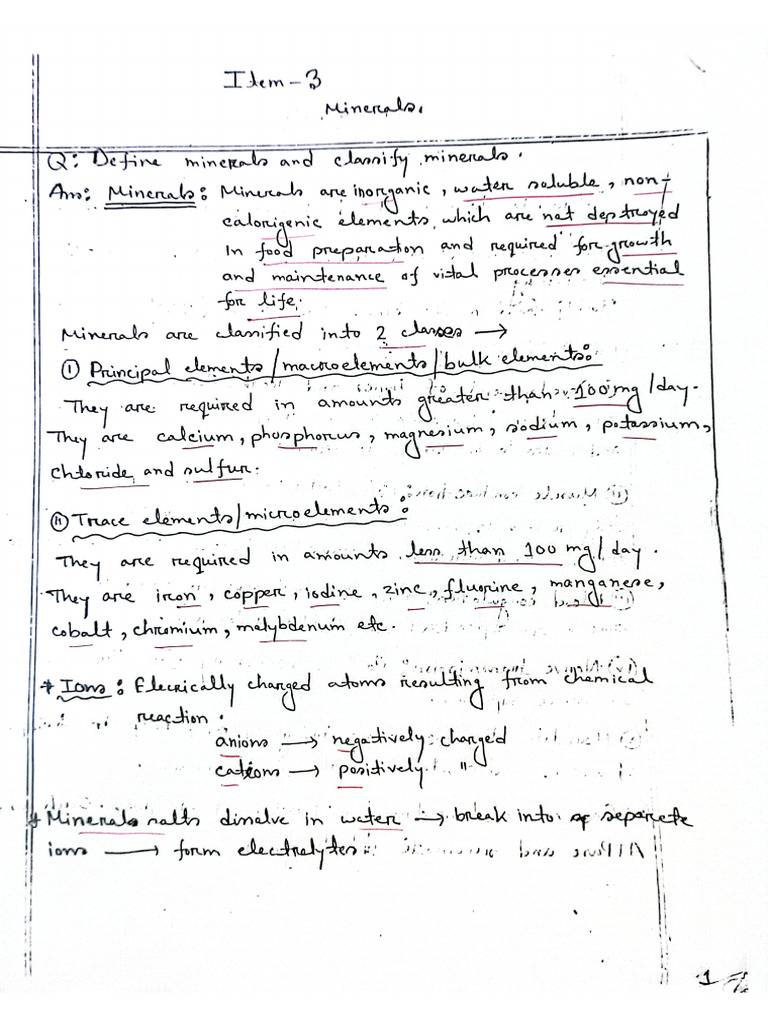 Item-3
Minerals.
Q: Define minerals and classify minerals.
Ans: Minerals: Minerals are inorganic, water soluble, non-
calorigenic elements which are not destroyed
In food preparation and required for growth
and maintenance of vital processes essential
for life.
Minerals are classified into 2 classes →
(I) Principal elements/macroelements/bulk elements:
They are required in amounts greater than 100mg/day.
They are calcium, phosphorus, magnesium, sodium, potassium,
chloride and sulfur.
(II) Trace elements/microelements:
They are required in amounts less than 100 mg/day.
They are iron, copper, iodine, zinc, fluorine, manganese,
cobalt, chromium, molybdenum etc.
* Ions: Elecrically charged atoms resulting from chemical
reaction.
anions → negatively charged
cations → positively "
* Minerals salts disolve in water → break into separete
ions → form electrolytes
1